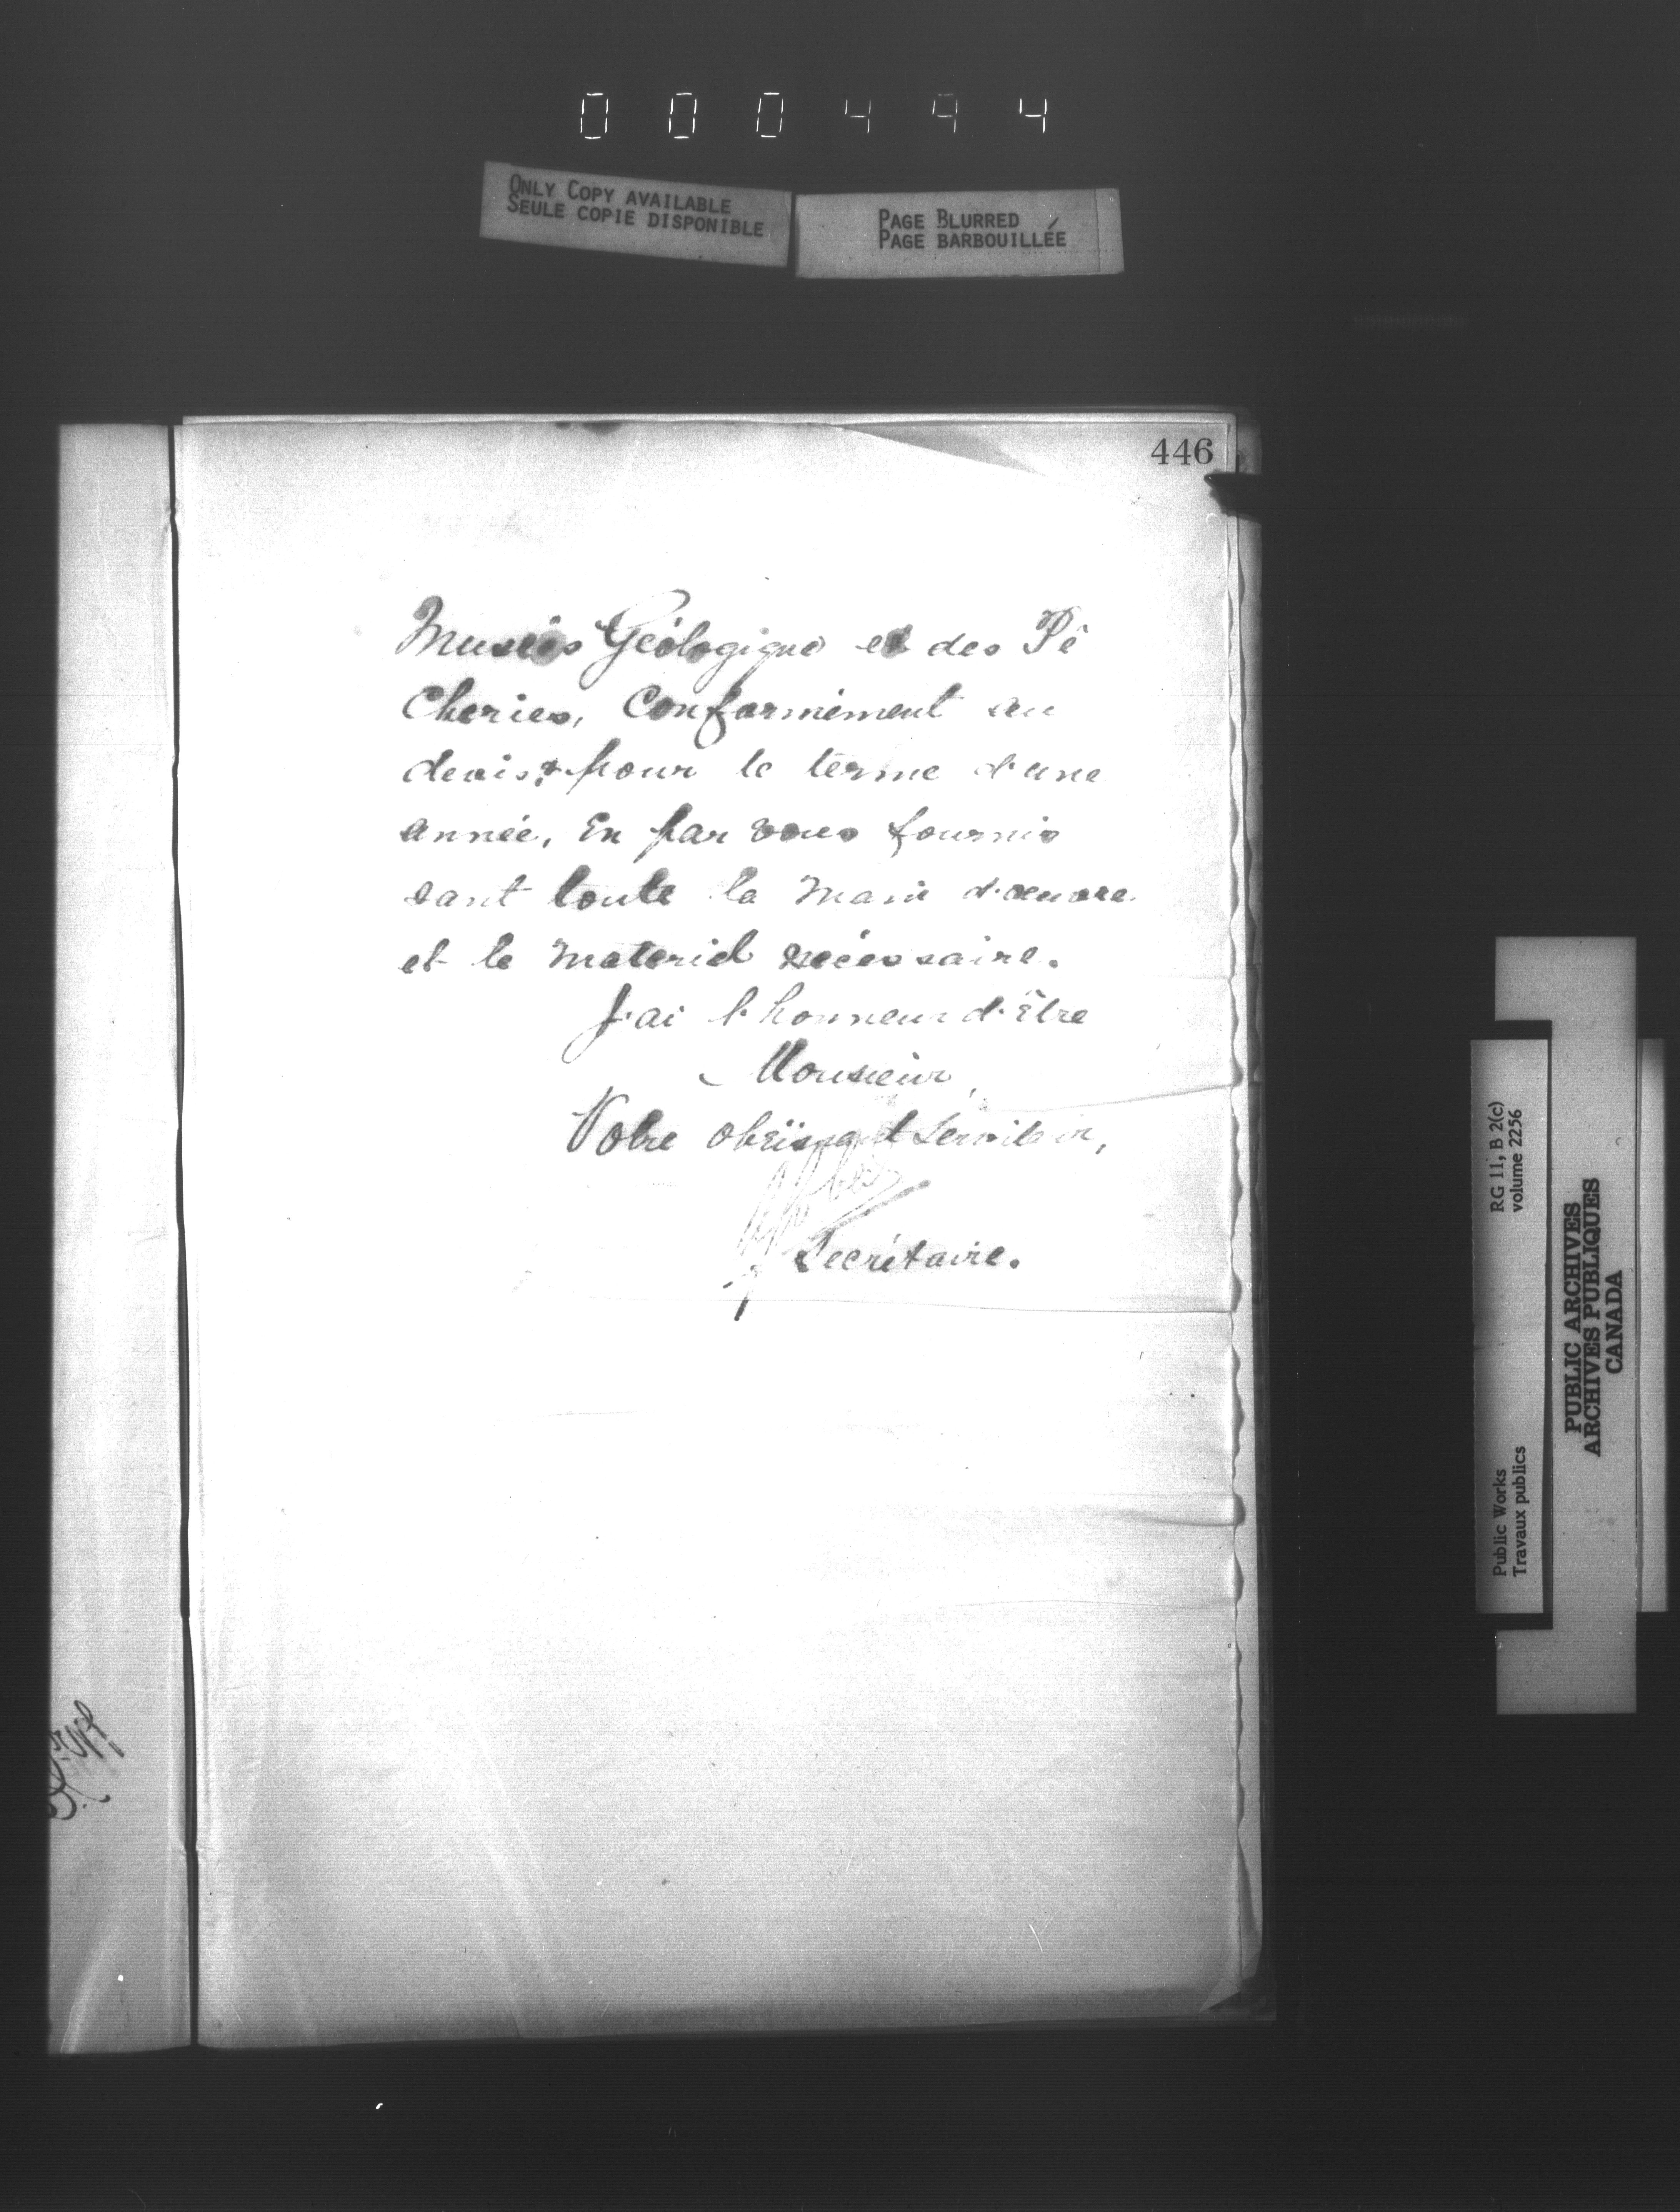 000494
ONLY COPY AVAILABLE
SEULE COPIE DISPONIBLE
PAGE BLURRED
PAGE BARBOUILLÉE
446
Musées Géologique et des Pê
cheries, Conformément au
devis & pour le terme d'une
année, en par vous fournis
sant toute la main d'œuvre
et le matériel nécessaire.
J'ai l'honneur d'être
Monsieur,
Votre obéissant Serviteur,
Secrétaire.
RG 11, B 2(c)
volume 2256
Public Works
Travaux publics
PUBLIC ARCHIVES
ARCHIVES PUBLIQUES
CANADA